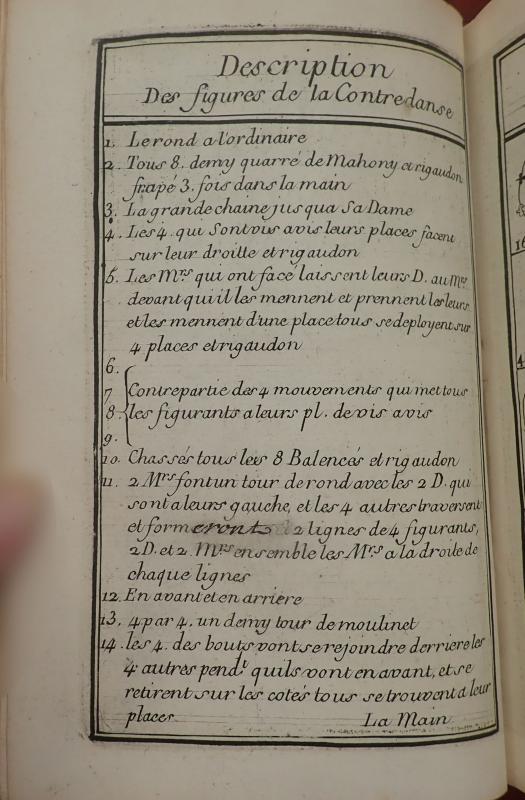 Description
Des figures de la Contredanse
1. Le rond a l'ordinaire
2. Tous 8. demy quarré de Mahony et rigaudon
frapé 3. fois dans la main
3. La grande chaine jusqua Sa Dame
4. Les 4. qui Sont vis avis leurs places facent
sur leur droitte et rigaudon
5. Les Mrs qui ont facé laissent leurs D. au Mrs
devant qui il les mennent et prennent les leurs
et les mennent d'une place tous se deployent sur
4 places et rigaudon
6.
7 Contrepartie des 4 mouvements qui met tous
8 les figurants a leurs pl. de vis avis
9.
10. Chassés tous les 8 Balencés et rigaudon
11. 2 Mrs font un tour de rond avec les 2 D. qui
sont a leurs gauche, et les 4 autres traversent
et formeronts 2 lignes de 4 figurants,
2 D. et 2. Mrs ensemble les Mrs a la droite de
chaque lignes
12. En avant et en arriere
13. 4 par 4. un demy tour de moulinet
14. les 4. des bouts vont se rejoindre derriere les
4 autres pendt quils vont en avant, et se
retirent sur les cotés tous se trouvent a leur
places La Main